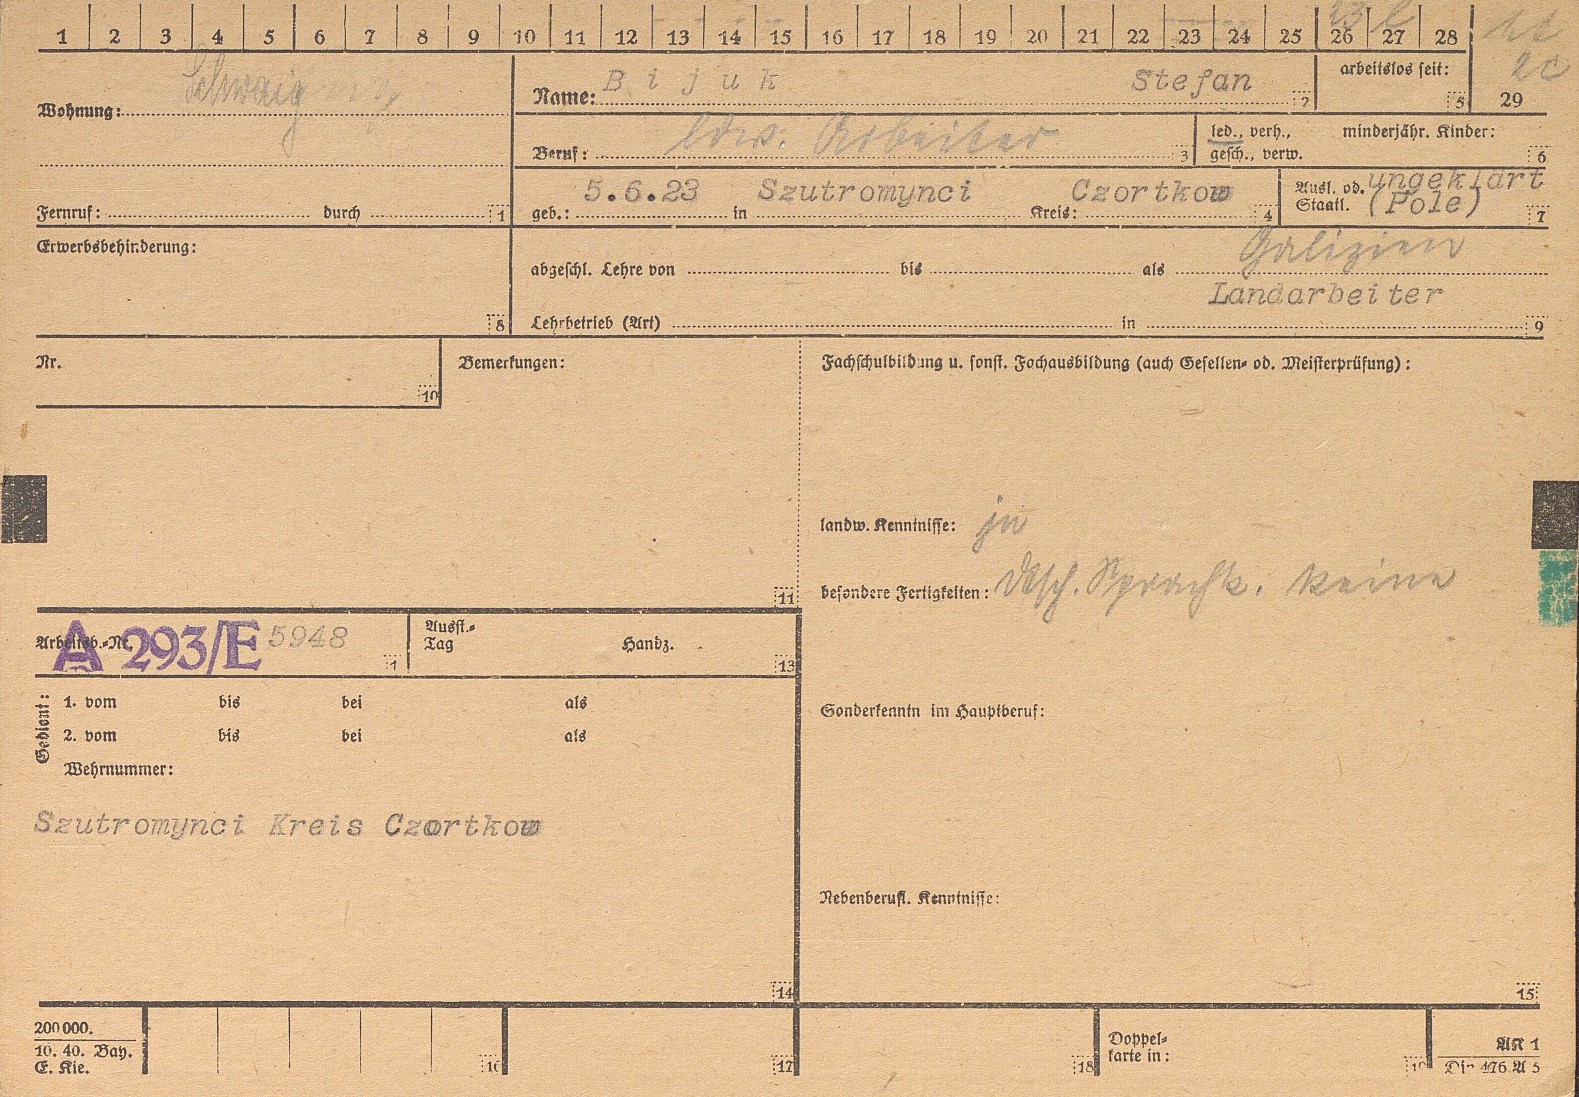 1 2 3 4 5 6 7 8 9 10 11 12 13 14 15 16 17 18 19 20 21 22 23 24 25 26 27 28
29
Wohnung: Schwaig
Name: Bijuk Stefan 2
arbeitslos seit: 5
Beruf: ldw. Arbeiter 3
led., verh., gesch., verw.
minderjähr. Kinder: 6
Fernruf: durch 1
geb.: 5.6.23 in Szutromynci Kreis: Czortkow 4
Ausl. od. Staatl. ungeklärt (Pole) 7
Erwerbsbehinderung: 8
Galizien
abgeschl. Lehre von bis als
Landarbeiter
Lehrbetrieb (Art) in 9
Nr. 10
Bemerkungen: 11
Fachschulbildung u. sonst. Fachausbildung (auch Gesellen- od. Meisterprüfung):
landw. Kenntnisse: ja
besondere Fertigkeiten: dtsch. Sprachk. keine
Arbeitsb.-Nr. A 293/E 5948
Ausst.-Tag Handz. 13
Gedient:
1. vom bis bei als
2. vom bis bei als
Wehrnummer:
Sonderkenntn im Hauptberuf:
Szutromynci Kreis Czortkow
Nebenberufl. Kenntnisse:
14
15
200 000.
10. 40. Bay.
E. Kie.
16
17
18
Doppelkarte in:
19
AK 1
Din 476 A 5